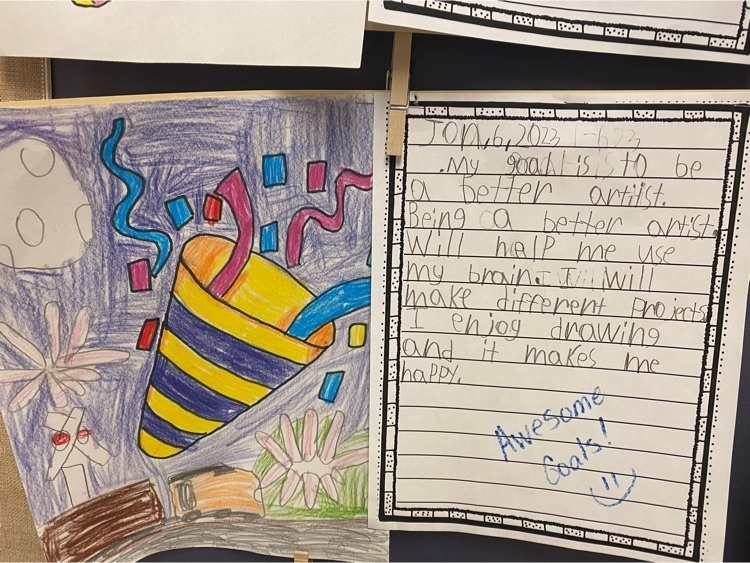 Jan, 6, 2023 1-6-23
My goal is to be
a better artist.
Being a better artist
Will help me use
my brain. I will
make different projects
I enjoy drawing
and it makes me
happy.
Awesome
Goals!